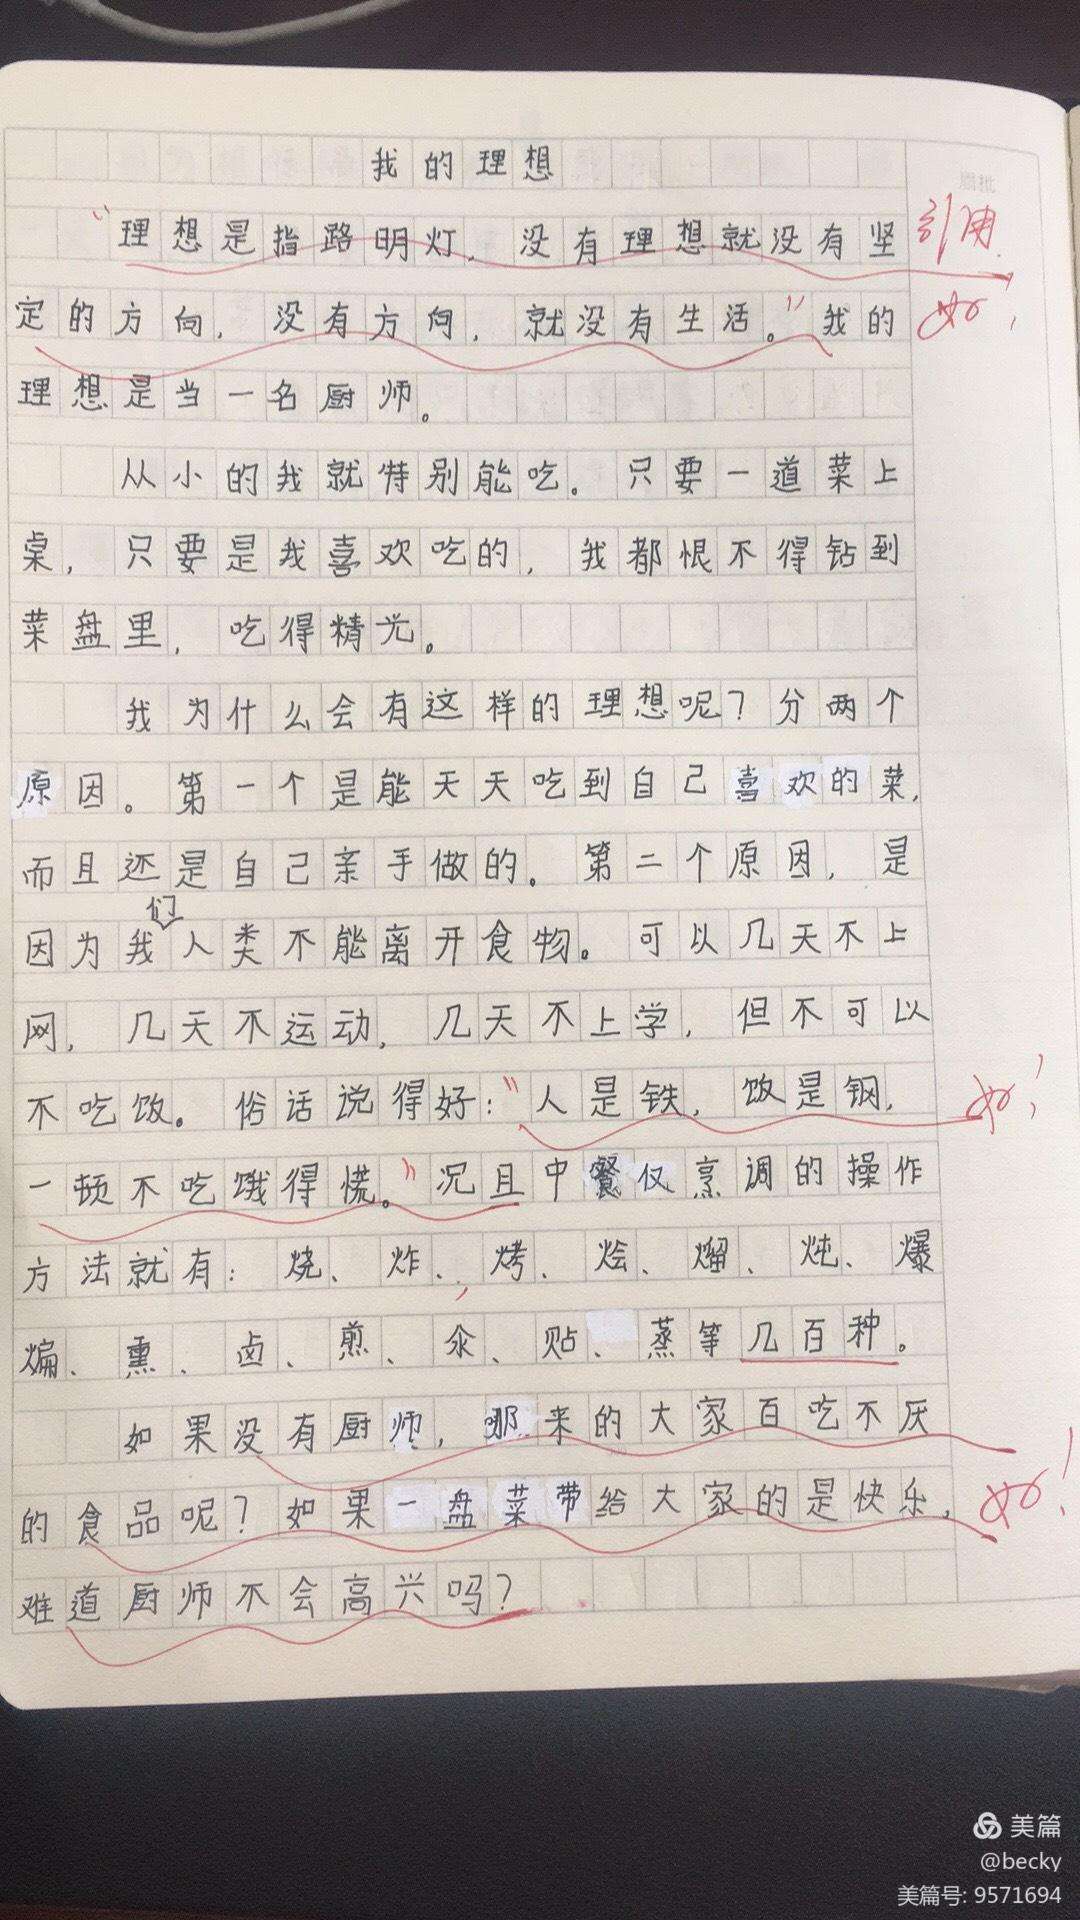 我的理想
“理想是指路明灯，没有理想就没有坚
引用
定的方向，没有方向，就没有生活。”我的
好！
理想是当一名厨师。
从小的我就特别能吃。只要一道菜上
桌，只要是我喜欢吃的，我都恨不得钻到
菜盘里，吃得精光。
我为什么会有这样的理想呢？分两个
原因。第一个是能天天吃到自己喜欢的菜，
而且还是自己亲手做的。第二个原因，是
因为我们人类不能离开食物。可以几天不上
网，几天不运动，几天不上学，但不可以
不吃饭。俗话说得好：“人是铁，饭是钢，
好！
一顿不吃饿得慌。”况且中餐仅烹调的操作
方法就有：烧、炸、烤、烩、熘、炖、爆、
煸、熏、卤、煎、汆、贴、蒸等几百种。
如果没有厨师，哪来的大家百吃不厌
的食品呢？如果一盘菜带给大家的是快乐，
好！
难道厨师不会高兴吗？
美篇
@becky
美篇号: 9571694